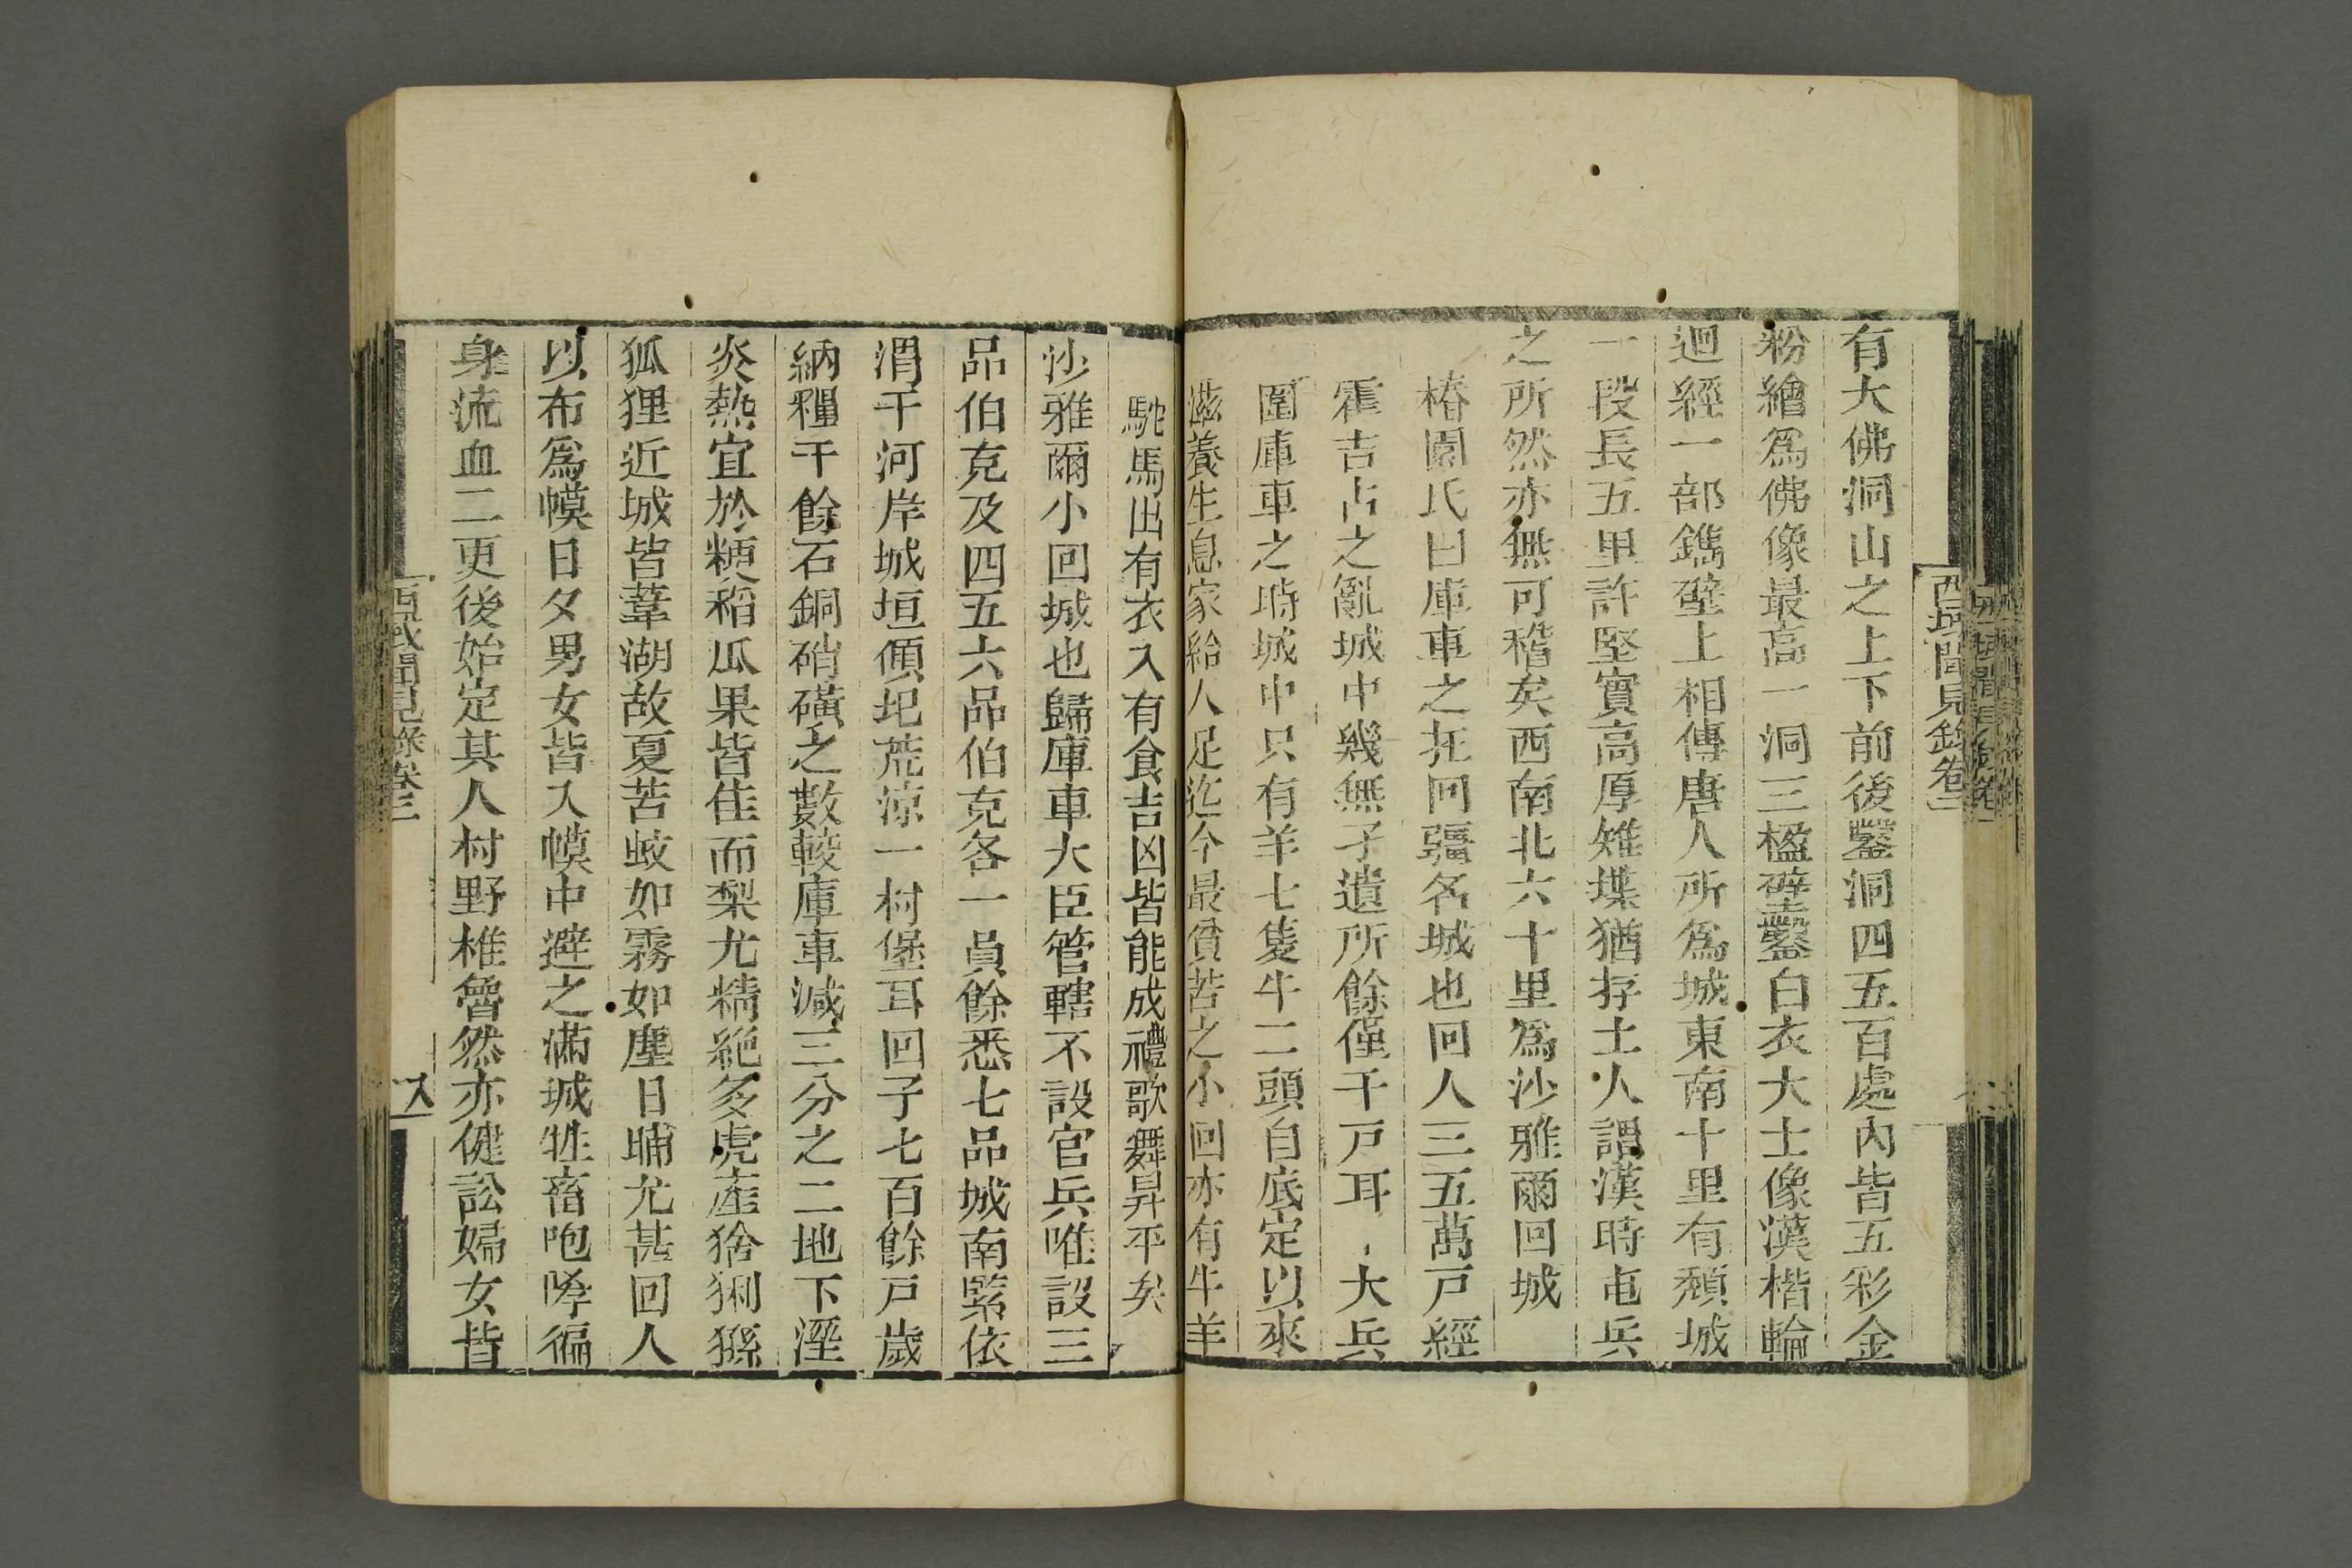 西域聞見錄卷二
有大佛洞山之上下前後鑿洞四五百處內皆五彩金
粉繪爲佛像最高一洞三楹壁鑿白衣大士像漢楷輪
迴經一部鐫壁上相傳唐人所爲城東南十里有頹城
一段長五里許堅實高厚雉堞猶存土人謂漢時屯兵
之所然亦無可稽矣西南北六十里爲沙雅爾回城
椿園氏曰庫車之在回疆名城也回人三五萬戸經
霍吉占之亂城中幾無孑遺所餘僅千戸耳大兵
圍庫車之時城中只有羊七隻牛二頭自底定以來
滋養生息家給人足迄今最貧苦之小回亦有牛羊
駝馬出有衣入有食吉凶皆能成禮歌舞昇平矣
沙雅爾小回城也歸庫車大臣管轄不設官兵唯設三
品伯克及四五六品伯克各一員餘悉七品城南緊依
渭干河岸城垣傾圯荒涼一村堡耳回子七百餘戸歲
納糧干餘石銅硝磺之數較庫車減三分之二地下溼
炎熱宜於粳稻瓜果皆佳而梨尤精絕多虎產猞猁猻
狐狸近城皆葦湖故夏苦蚊如霧如塵日晡尤甚回人
以布爲幙日夕男女皆入幙中避之滿城牲畜咆哮徧
身流血二更後始定其人村野椎魯然亦健訟婦女皆
西域聞見錄卷二
八